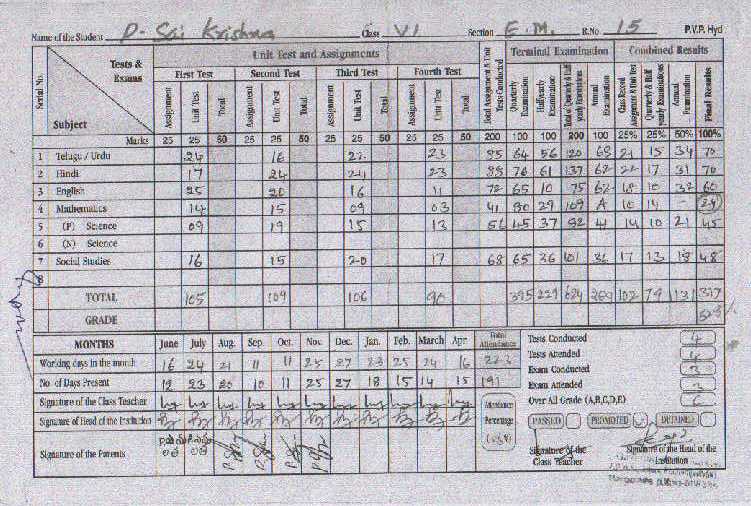 Name of the Student P. Sai Krishna Class VI Section E.M. R.No 15 P.V.P. Hyd
Serial No. Tests & Exams Subject Unit Test and Assignments Total Assignment & Unit Tests Conducted Terminal Examination Combined Results
First Test Second Test Third Test Fourth Test Quarterly Examination Halfyearly Examination Total of Quarterly & Half yearly Examinations Annual Examination Class Record Assignment & Unit Test Quarterly & Half yearly Examinations Annual Examination Final Results
Assignment Unit Test Total Assignment Unit Test Total Assignment Unit Test Total Assignment Unit Test Total
Marks 25 25 50 25 25 50 25 25 50 25 25 50 200 100 100 200 100 25% 25% 50% 100%
1 Telugu / Urdu 24 16 22 23 85 64 56 120 68 21 15 34 70
2 Hindi 17 24 24 23 88 76 61 137 62 22 17 31 70
3 English 25 20 16 11 72 65 10 75 62 18 10 32 60
4 Mathematics 14 15 09 03 41 80 29 109 A 10 14 - 24
5 (P) Science 09 19 15 13 56 45 37 82 41 14 10 21 45
6 (N) Science
7 Social Studies 16 15 20 17 68 65 36 101 36 17 13 18 48
8
TOTAL 105 109 106 90 395 229 624 269 102 79 131 317
GRADE
MONTHS June July Aug. Sep. Oct. Nov. Dec. Jan. Feb. March Apr. Total Attendance
Working days in the month 16 24 21 11 11 25 27 23 25 24 16 223
No. of Days Present 12 23 20 10 11 25 27 18 15 14 15 191
Signature of the Class Teacher
Signature of Head of the Institution
Signature of the Parents
Attendance Percentage
Tests Conducted 4
Tests Attended 4
Exam Conducted 3
Exam Attended 3
Over All Grade (A,B,C,D,E) C
PASSED PROMOTED DETAINED
Signature of the Class Teacher
Signature of the Head of the Institution